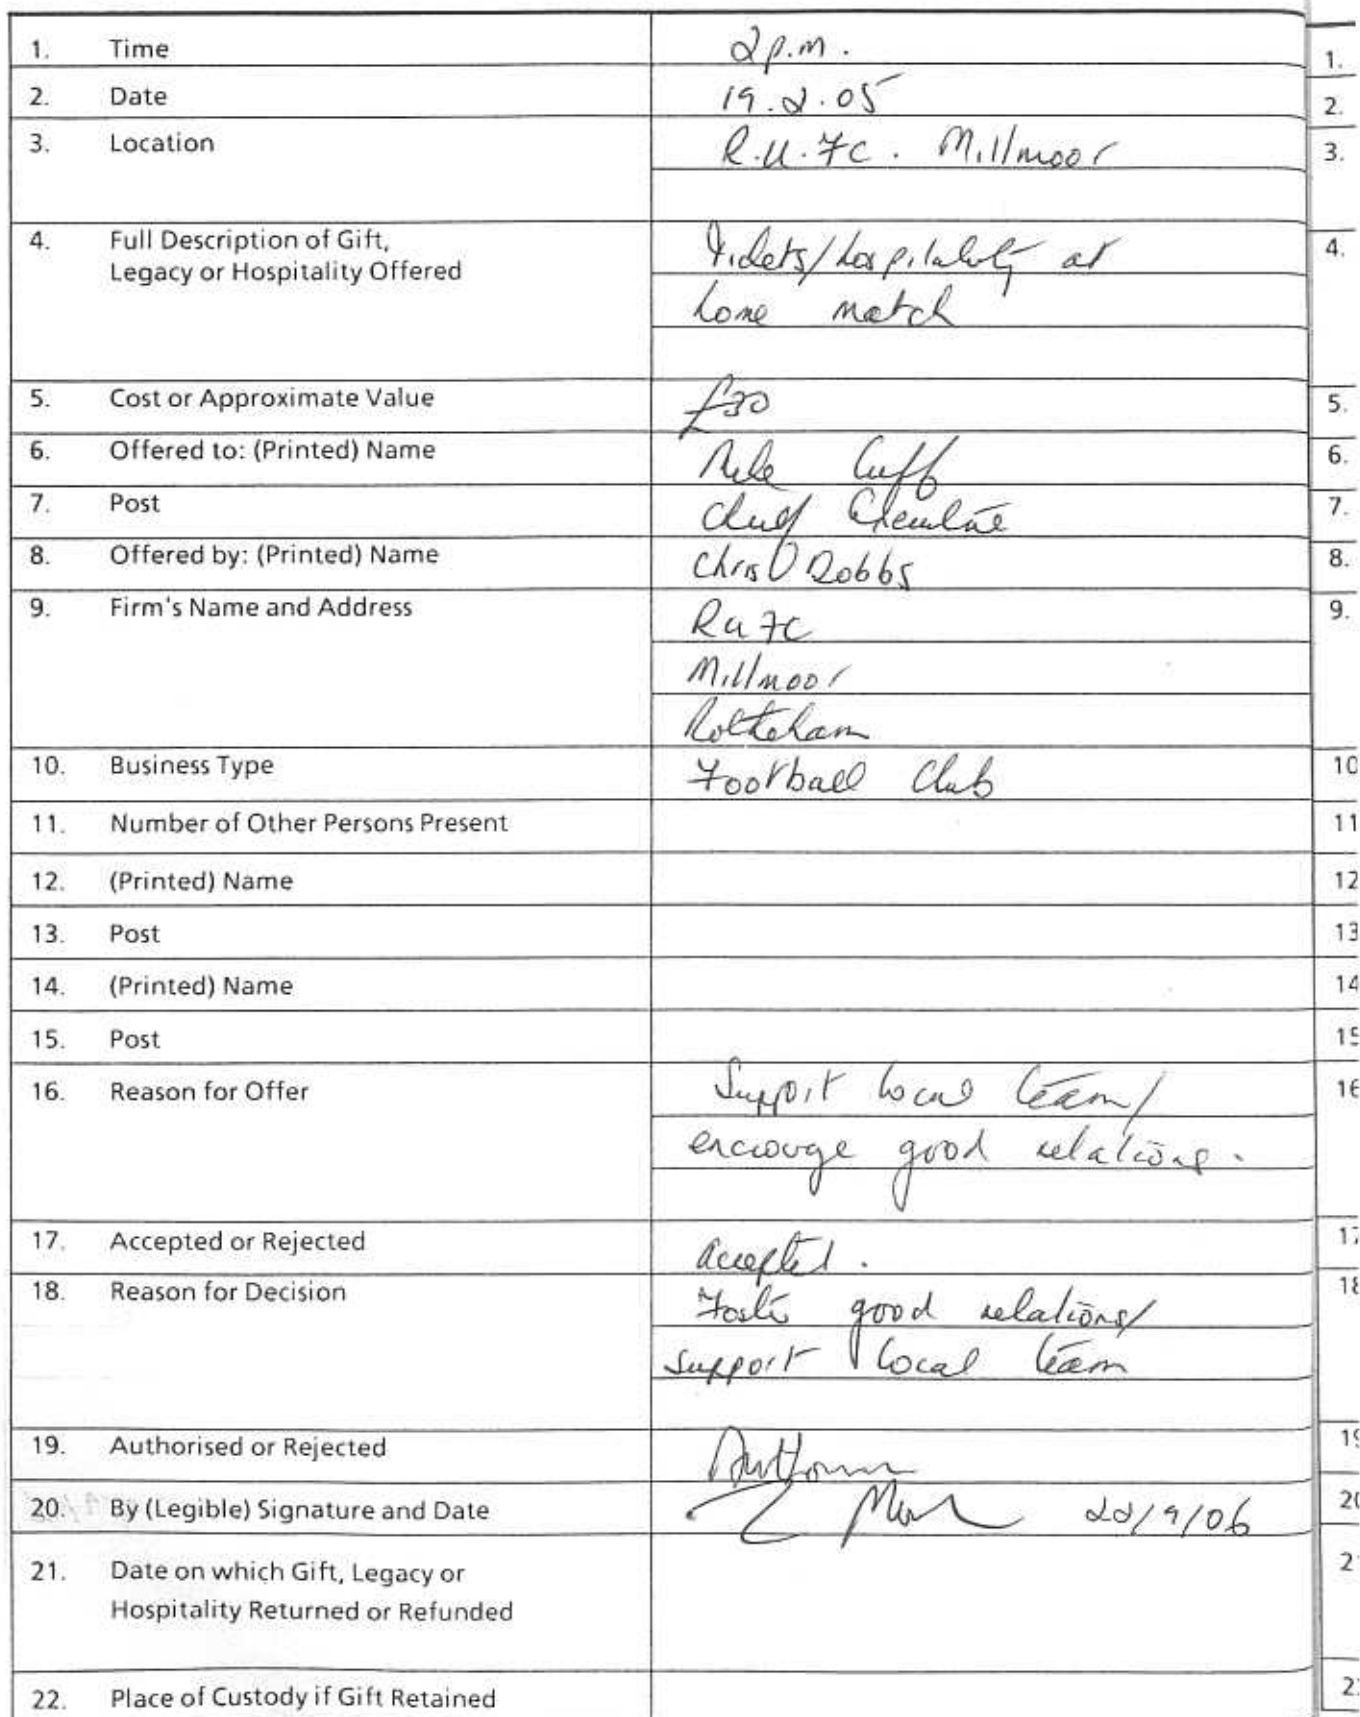 1. Time 2 p.m.
2. Date 19.2.05
3. Location R.U.FC. Millmoor
4. Full Description of Gift, Tickets/hospitality at
Legacy or Hospitality Offered home match
5. Cost or Approximate Value £30
6. Offered to: (Printed) Name Mike Cuff
7. Post Chief Executive
8. Offered by: (Printed) Name Chris Dobbs
9. Firm's Name and Address RUFC
Millmoor
Rotherham
10. Business Type Football Club
11. Number of Other Persons Present
12. (Printed) Name
13. Post
14. (Printed) Name
15. Post
16. Reason for Offer Support local team/
encourage good relations.
17. Accepted or Rejected accepted.
18. Reason for Decision Foster good relations/
support local team
19. Authorised or Rejected
20. By (Legible) Signature and Date 22/9/06
21. Date on which Gift, Legacy or
Hospitality Returned or Refunded
22. Place of Custody if Gift Retained
1.
2.
3.
4.
5.
6.
7.
8.
9.
10
11
12
13
14